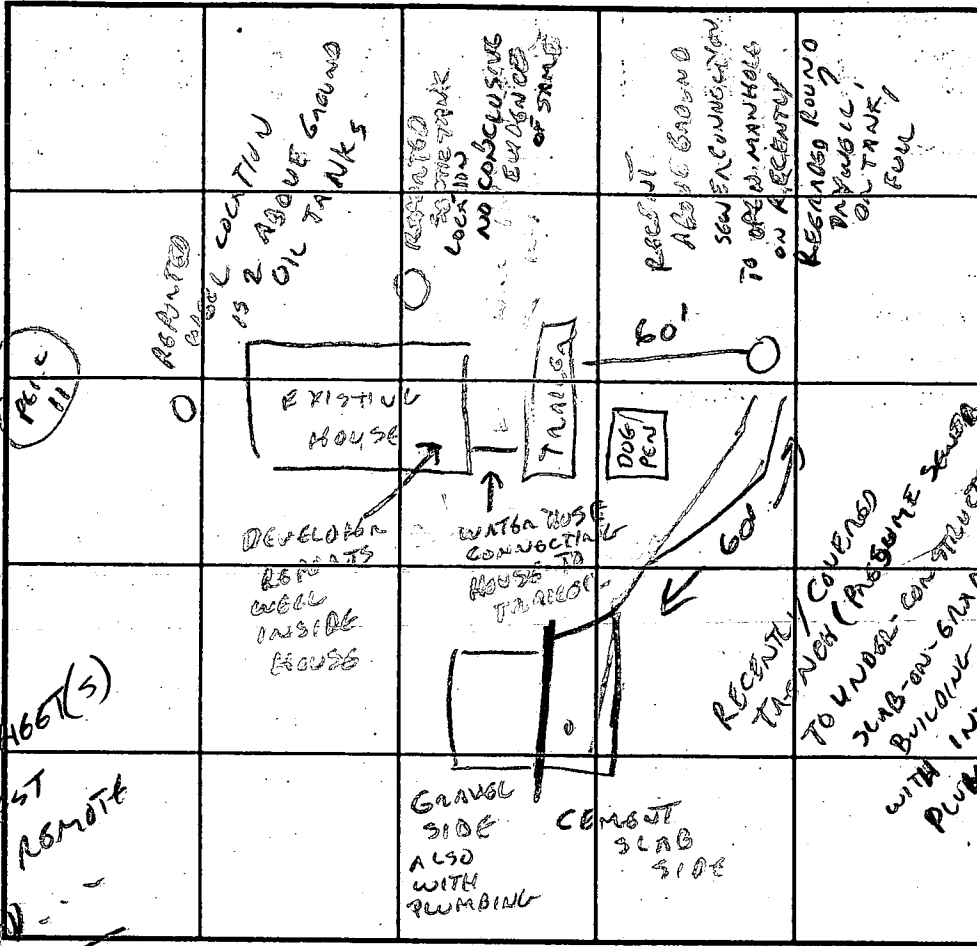 REPORTED
LOCATION
IS 2 ABOVE GROUND
OIL TANKS
REPORTED
SEPTIC TANK
LOCATION
NO CONCLUSIVE
EVIDENCE
OF SAME
RECENT
ABOVE GROUND
SEWER CONNECTION
TO OPEN MANHOLE
ON RECENTLY
REGRADED ROUND
DRYWELL,
OR TANK,
FULL
PERC
11
EXISTING
HOUSE
TRAILER
60'
DOG
PEN
DEVELOPER
REPORTS
WELL
INSIDE
HOUSE
WATER HOSE
CONNECTING
HOUSE TO
TRAILER
60'
RECENTLY COVERED
TRENCH (PRESUME SEWER
TO UNDER-CONSTRUCT
SLAB-ON-GRA
BUILDING
WITH IN
PLUM
HEET(S)
ST
REMOTE
GRAVEL
SIDE
ALSO
WITH
PLUMBING
CEMENT
SLAB
SIDE